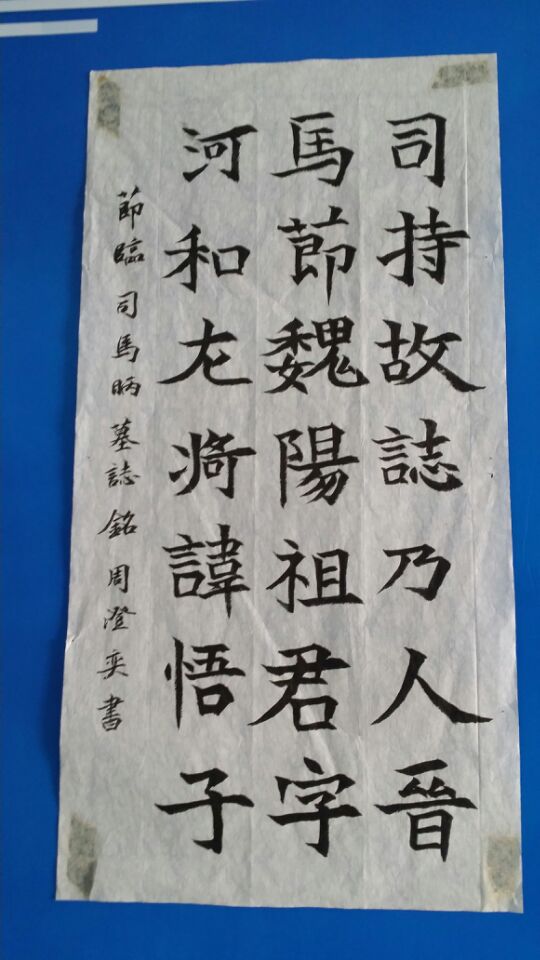 司持故誌乃人晉
馬節魏陽祖君字
河和尢㢡諱悟子
節臨司馬昞墓誌銘周澄奕書